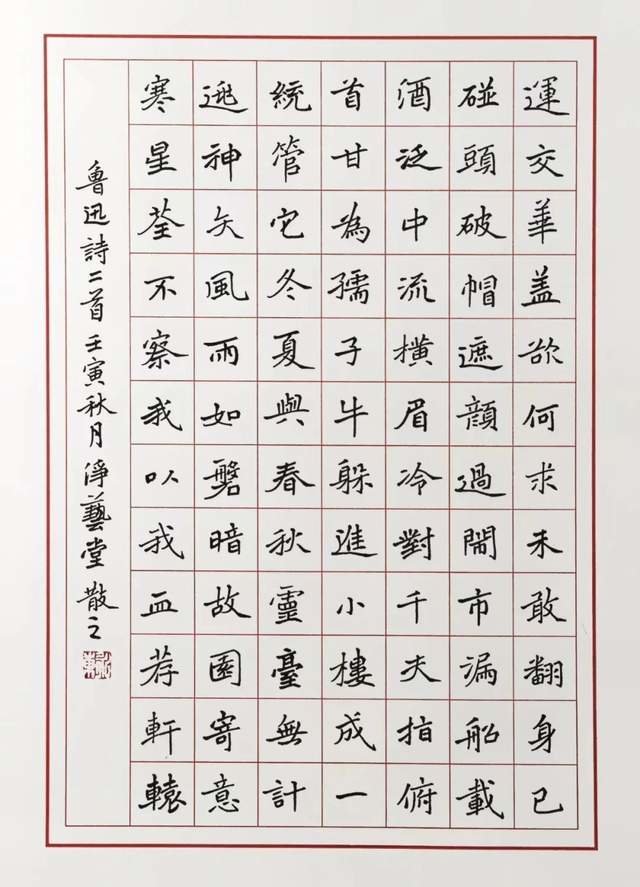 運交華盖欲何求未敢翻身已
碰頭破帽遮顔過鬧市漏船載
酒泛中流横眉冷對千夫指俯
首甘為孺子牛躲進小樓成一
統管它冬夏與春秋靈臺無計
逃神矢風雨如磐暗故園寄意
寒星荃不察我以我血荐軒轅
魯迅詩二首壬寅秋月淨藝堂散之